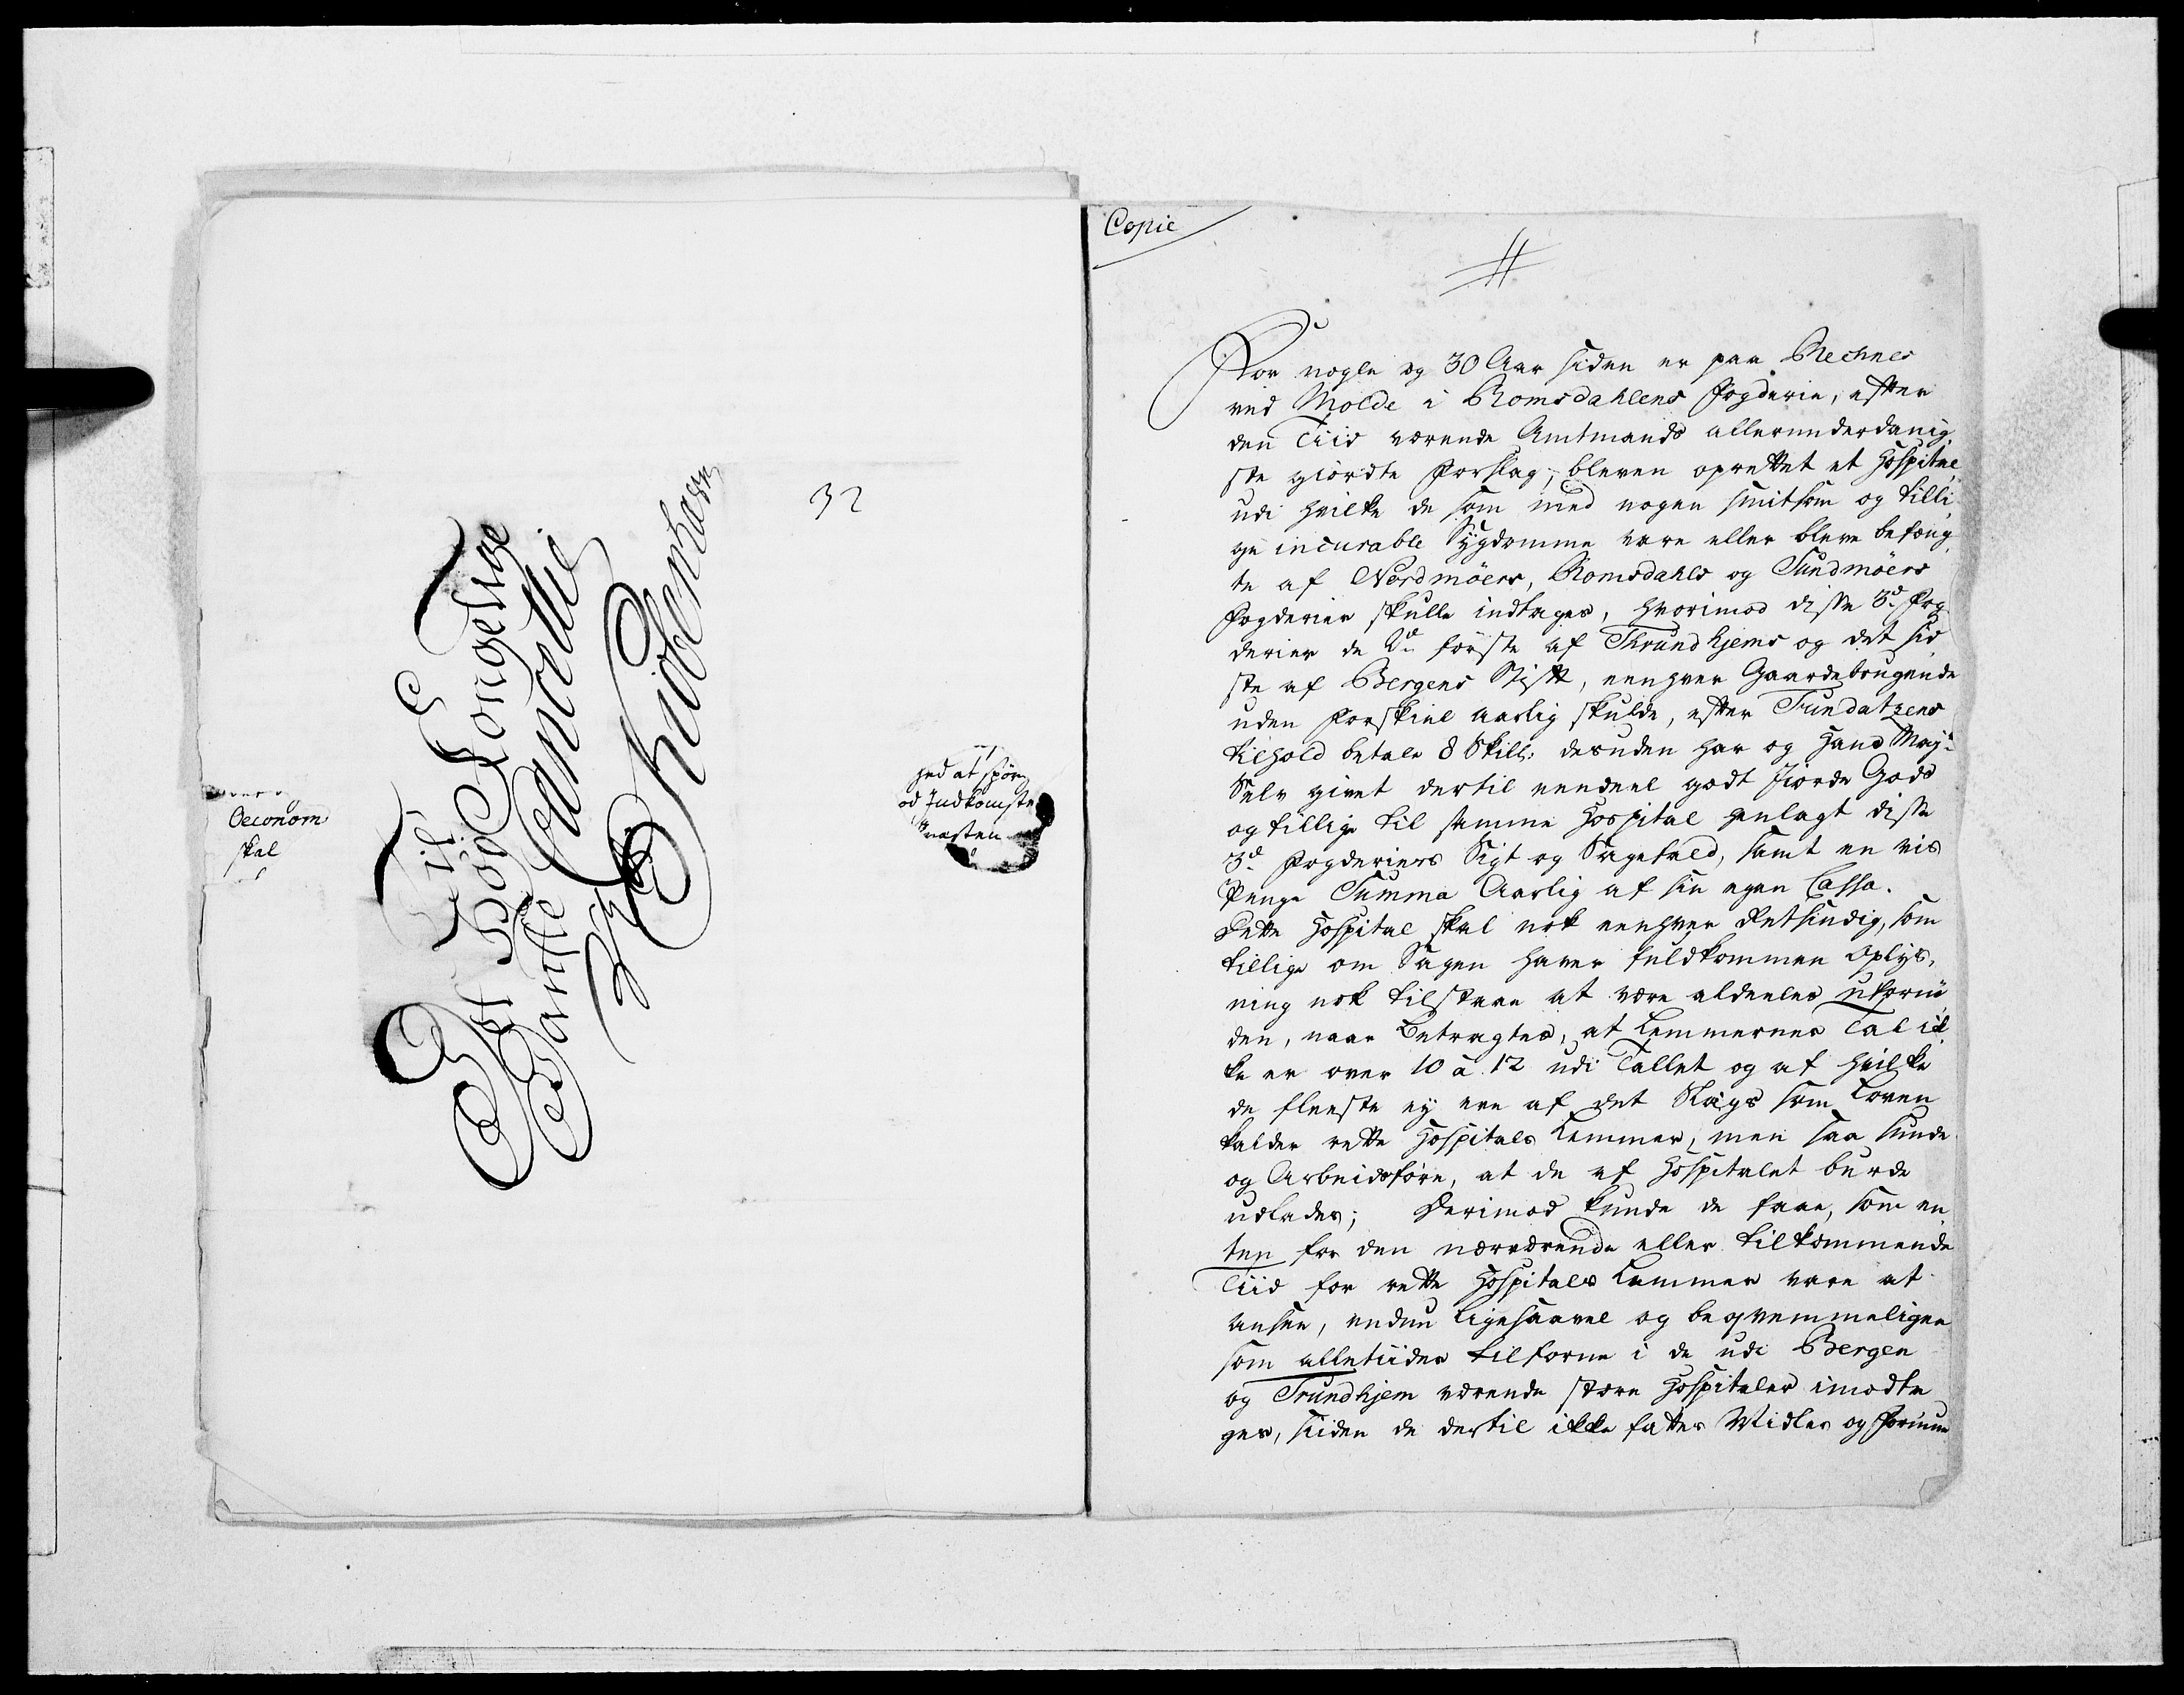 Til
Det Höy Kongelige
Danske Cancellie
Kiöbenhavn
32
Oeconom
skal
hed at spör
od Indkomste
Næsten
Copie
For nogle og 30 Aar siden er paa Rechnes
ved Molde i Romsdahlens fogderie, efter
den Tiid værende Amtmands allerunderdanig
ste giordte Forslag, bleven oprettet et Hospital
udi hvilke de som med nogen smitsom og tilli
ge incurable Sygdomme vare eller bleve befæng
te af Nordmöers, Romsdahls og Sundmöers
Fogderier skulle indtages, hvorimod disse 3de Fog
derier de 2de förste af Thrundhjems og det sid
ste af Bergens Stift, eenhver Gaardebrugende
uden Forskiel aarlig skulde, efter Fundatzens
tilhold betale 8 Skill: desuden har og Hans Mayt:
Selv givet dertil eendeel godt Jorde Gods
og tillige til samme Hospital henlagt disse
3de Fogderiers Sigt og Sagefald, samt en vis
Penge Summa Aarlig af sin egen Cassa.
Dette Hospital skal nok eenhver Retsindig, som
tillige om Sagen haver fuldkommen oplys,
ning nok tilstaae at være aldeeles ufornü
den, naar Betragtes, at Lemmernes Tal ik
ke er over 10 a 12 udi Tallet og af hvilke
de fleeste ej ere af det Slags som Loven
kalder rette Hospitals Lemmer, men saa sunde
og Arbeidsföre, at de af Hospitalet burde
udlades; Derimod kunde de faae, som en
ten for den nærværende eller tilkommende
Tiid for rette Hospitals Lemmer vare at
ansee, endnu ligesaavel og beqvemmeligen
som alletiider tilforne i de udi Bergen
og Trundhjem værende store Hospitaler imodta
ges, siden de dertil ikke fattes Midler og Formue